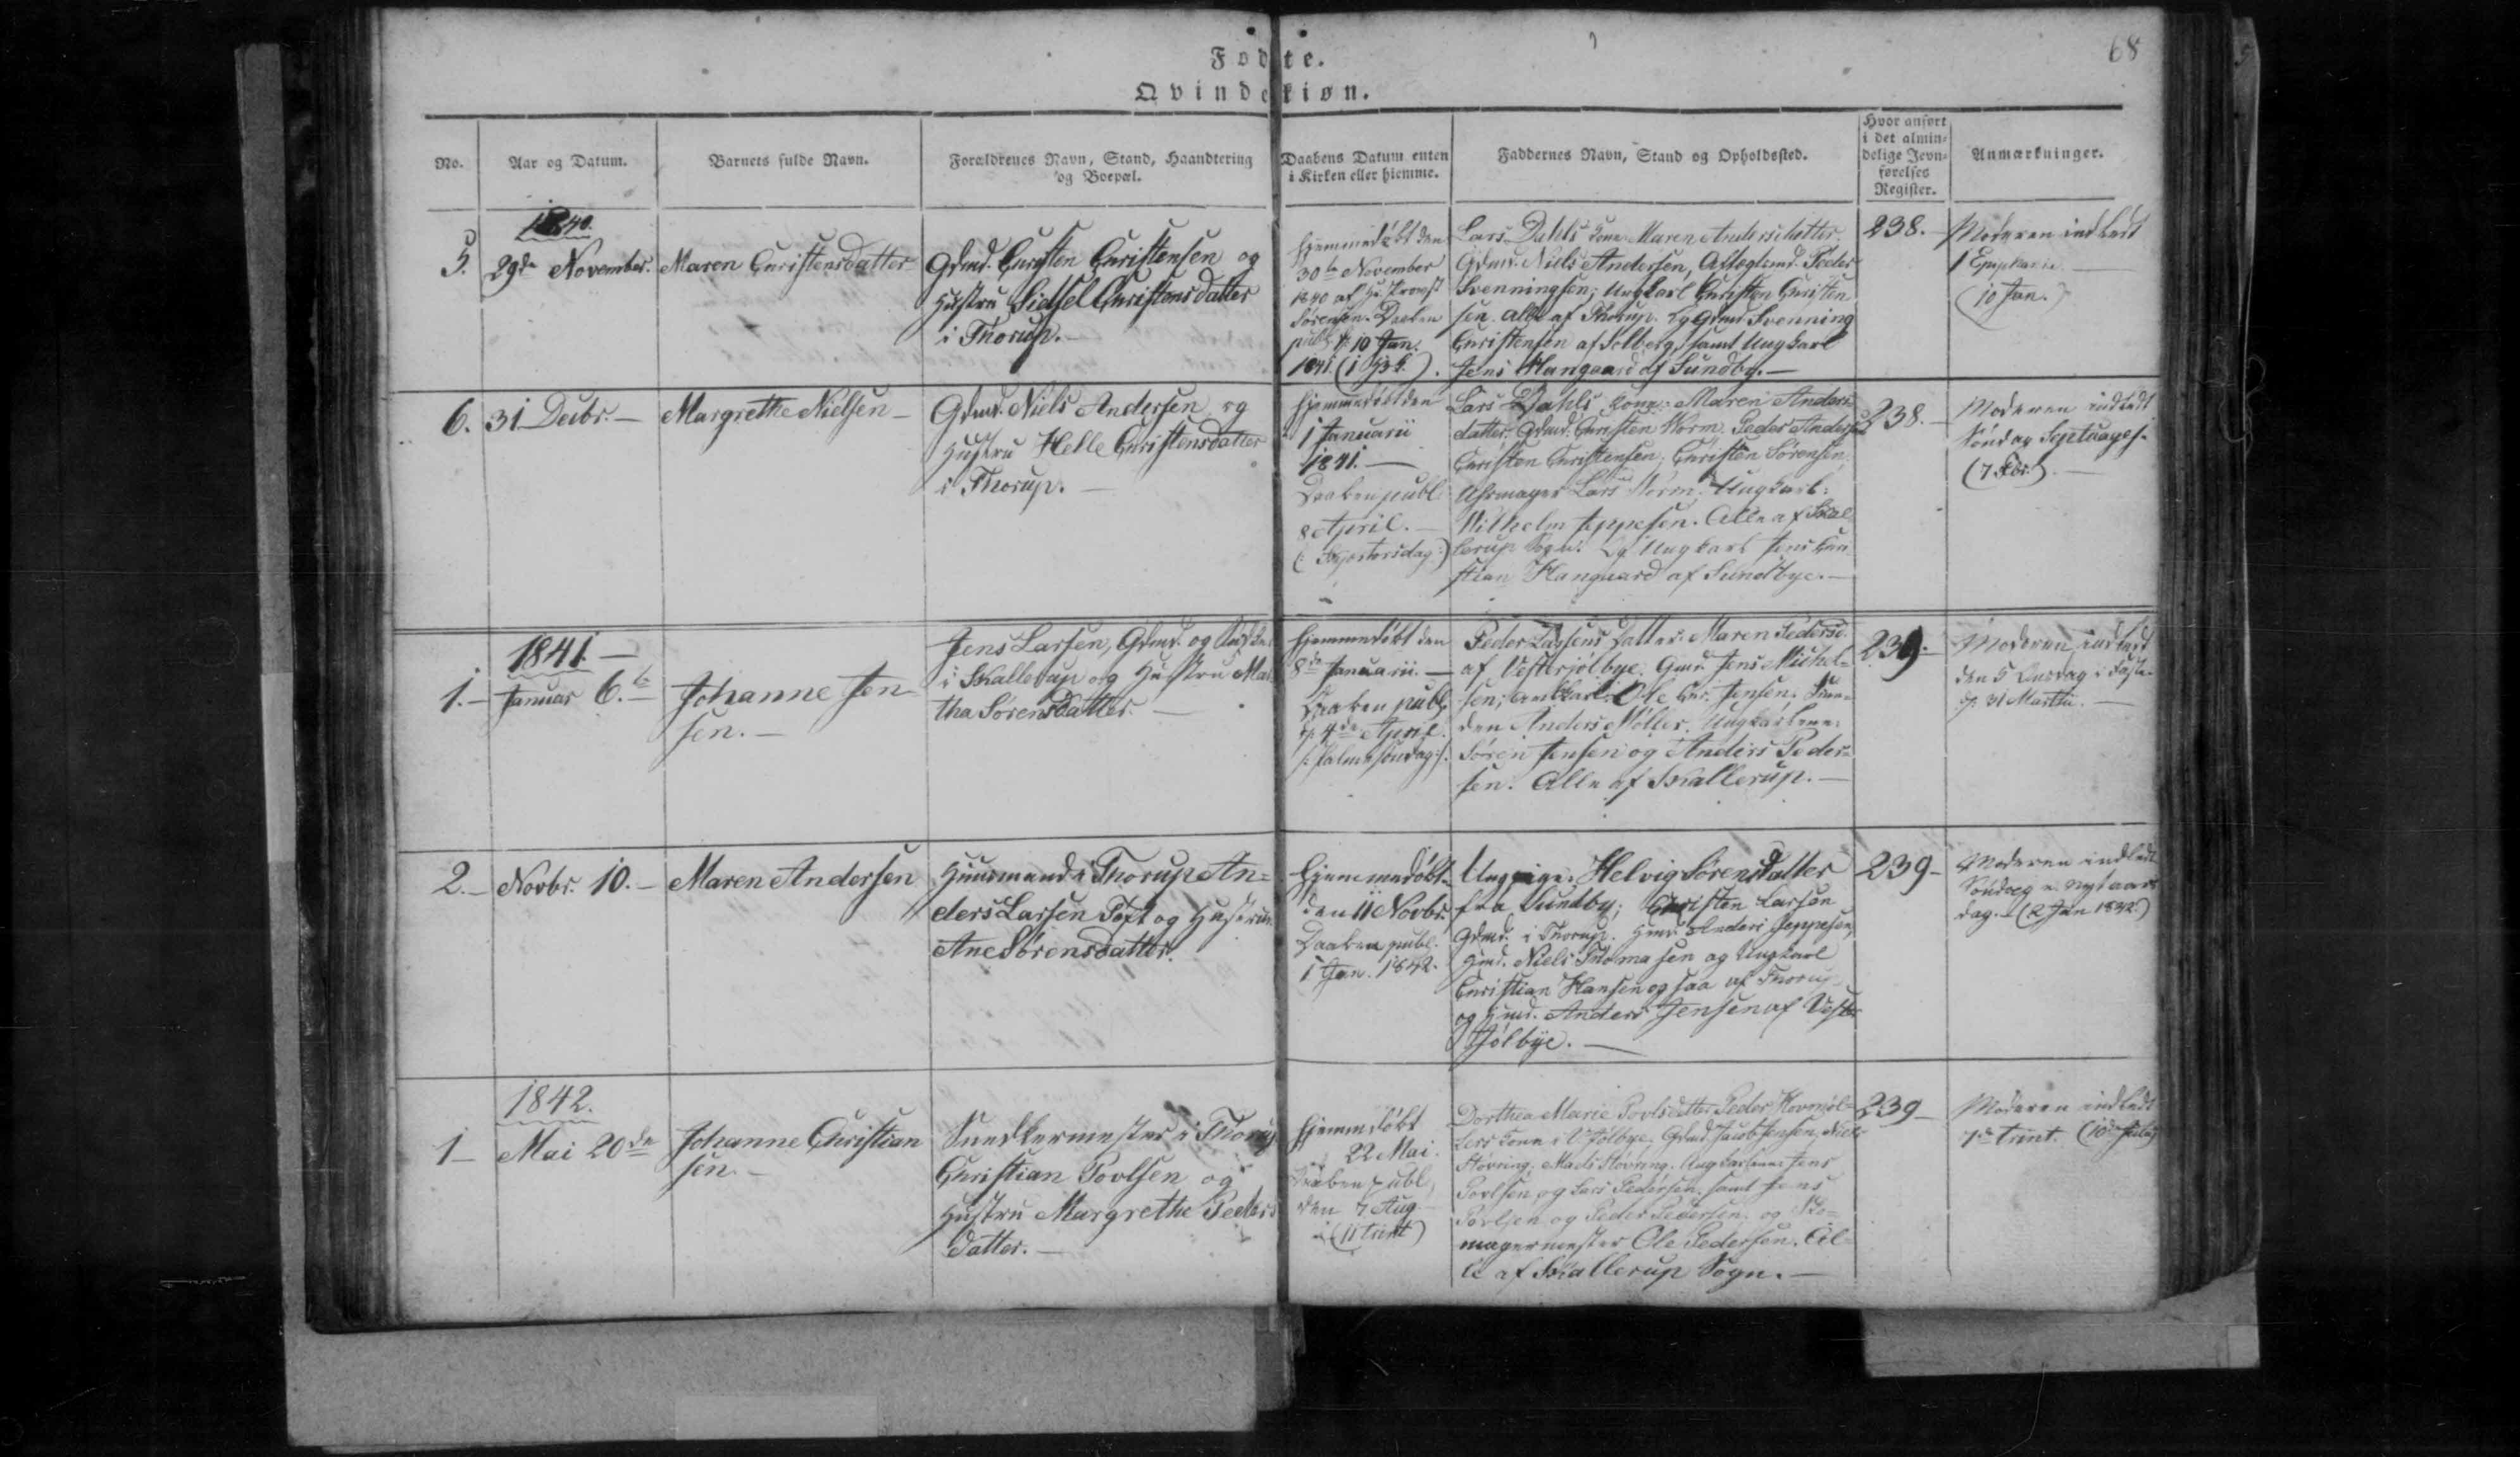 68
Fødte.
Qvindekiøn.
No.
Aar og Datum.
Barnets fulde Navn.
Forældrenes Navn, Stand, Haandtering
og Boepæl.
Daabens Datum enten
i Kirken eller hiemme.
Faddernes Navn, Stand og Opholdssted.
Hvor anført
i det almin-
delige Jevn-
førelses
Register.
Anmærkninger.
1840.
5.
29de November.
Maren Christensdatter
Gdmd. Christen Christensen og
Hustru Sidsel Christensdatter
i Thorup.
Hjemmedøbt den
30te November
1840 af Hr. Provst
Sørensen. Daaben
publ. d. 10 Jan.
1841.
Lars Dahls Kone Maren Andersdatter.
Gdmd. Niels Andersen, Aftægtsmd. Peder
Svenningsen; Ungkarl Christen Christen
sen. alle af Thorup. og Gdmd. Svenning
Christensen af Solberg, samt Ungkarl
Jens Hangaard af Sundby.—
238.
Moderen indledt
1 Epiphaniæ
(10 Jan.)
6.
31 Decbr.—
Margrethe Nielsen—
Gdmd. Niels Andersen og
Hustru Helle Christensdatter
i Thorup.—
Hjemmedøbt den
1 Januarii
1841.—
Daaben publ.
8 April.—
(: Skjærtorsdag:)
Lars Dahls Kone Maren Anders-
datter. Gdmd. Christen Worm. Peder Andersen
Christen Christensen; Christen Sørensen,
Uhrmager Lars Worm, Ungkarl:
Wilhelm Jeppesen. Alle af Skal
lerup Sogn. Og Ungkarl Jens Chri
stian Hangaard af Sundbye.—
238.—
Moderen indledt
Søndag Septuages.
(7 Febr.)—
1841.—
1.—
Januar 6.te
Johanne Jen
sen.—
Jens Larsen, Gdmd. og
i Skallerup og Hustru Mar
tha Sørensdatter.—
Hjemmedøbt den
8de Januarii.—
Daaben publ.
d. 4de April.
/: Palmesøndag:/.
Peder Lassens Datter Maren Pedersd.
af Vesterjølbye. Gmd. Jens Michel-
sen; Ungkarl Ole Chr. Jensen.
den Anders Møller. Ungkarlene:
Søren Jensen og Anders Peder-
sen. Alle af Skallerup.—
239.—
Moderen indledt
den 5 Onsdag i Faste.
d. 31 Martii.—
2.—
Novbr. 10.—
Maren Andersen
Huusmand i Thorup An-
ders Larsen Toft og Hustru
Ane Sørensdatter.
Hjemmedøbt
den 11 Novbr.
Daaben publ.
1 Jan. 1842.
Ungpige: Helvig Sørensdatter
fra Sundby; Christen Larsen
Gdmd. i Thorup. Hmd. Anders Jeppesen,
Hmd. Niels Thomasen og Ungkarl
Christian Hansen ogsaa af Thorup
og Hmd. Anders Jensen af Vester
Jølbye.—
239—
Moderen indledt
Søndag e. Nytaars
dag.— (2 Jan 1842.)
1842.
1—
Mai 20de
Johanne Christian
sen.—
Snedkermester i Thorup
Christian Povlsen og
Hustru Margrethe Peders
datter.—
Hjemmedøbt
22 Mai.
Daaben publ.
den 7 Aug
(11 Trint)
Dorthea Marie Povlsdatter Peder Hovmøl-
lers Kone i V. Jølbye, Gdmd. Jacob Jensen, Niels
Støvring, Mads Støvring. Ungkarlene Jens
Povlsen og Lars Pedersen, samt Jens
Povlsen og Peder Pedersen og Sko-
magermester Ole Pedersen. Al-
le af Skallerup Sogn.—
239—
Moderen indledt
7de Trint. (10de Juli)